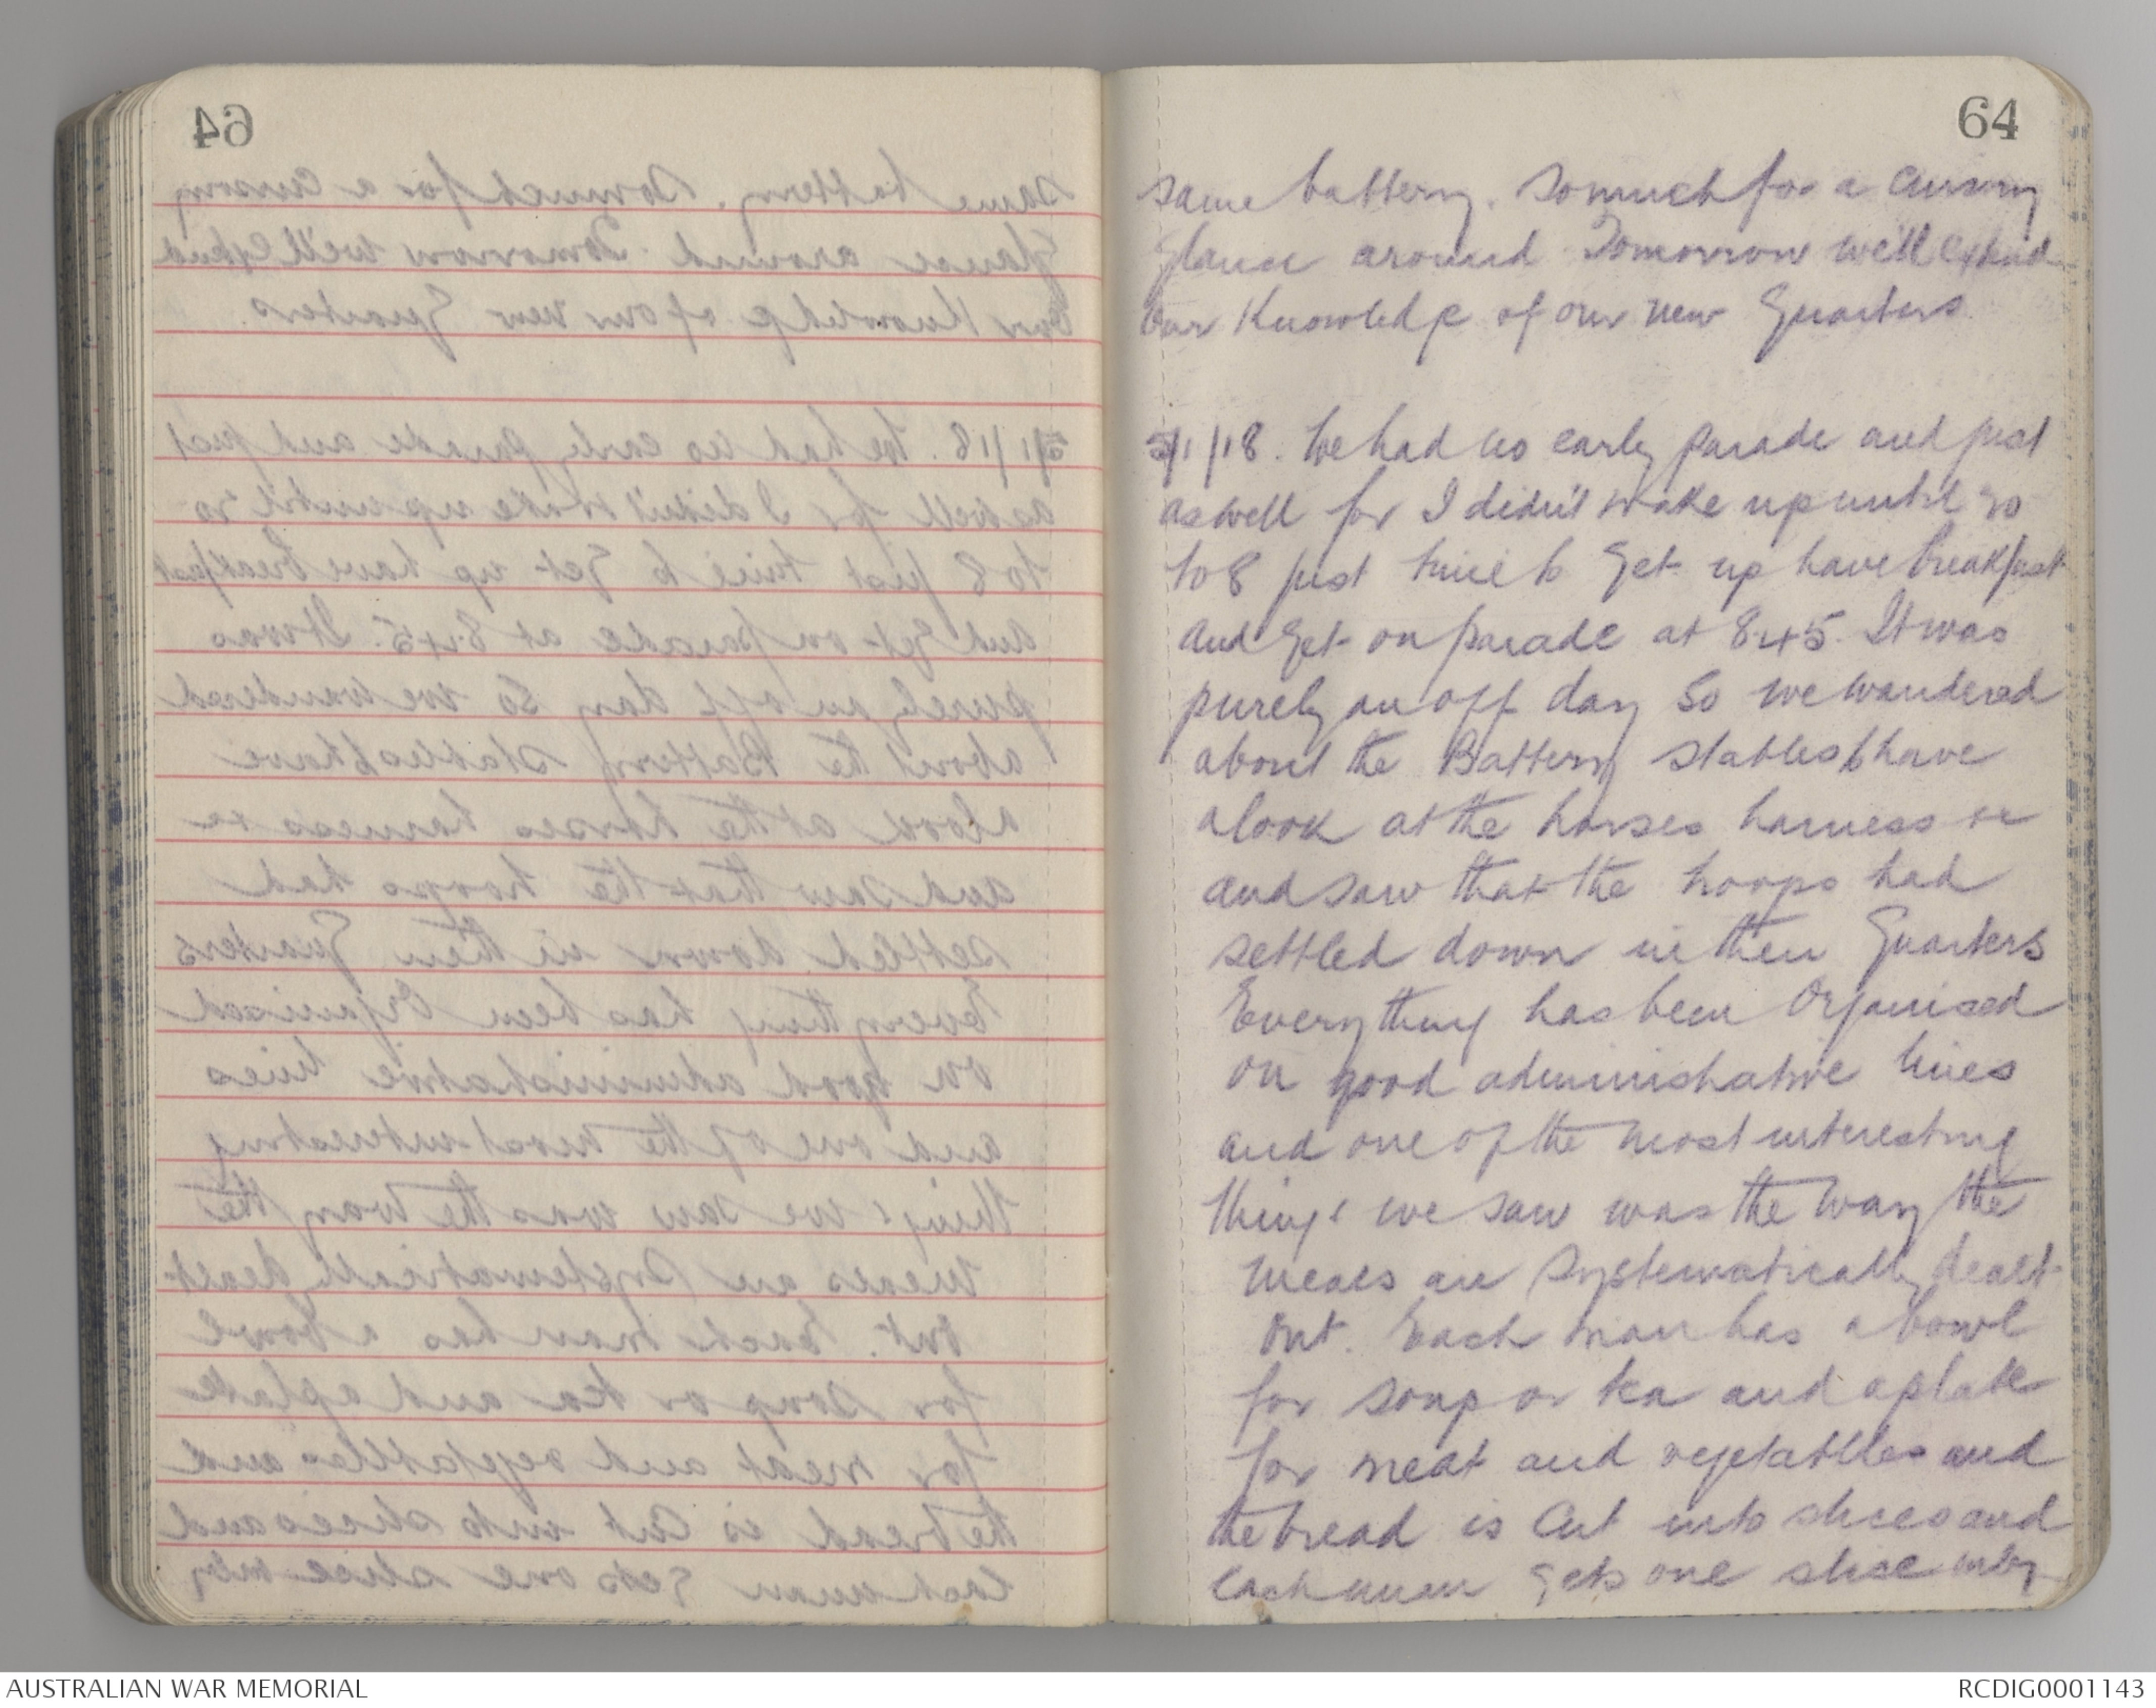 64
same battery. So much for a cursory
glance around. Tomorrow we'll extend
our Knowledge of our new Quarters.
/1/18. We had no early parade and just
as well for I didn't wake up until 20
to 8 just time to get up have breakfast
and get on parade at 8.45. It was
purely an off day so we wandered
about the Battery stables to have
a look at the horses harness &c
and saw that the troops had
settled down in their Quarters
Everything has been Organised
on good administrative lines
and one of the most interesting
things we saw was the way the
meals are systematically dealt
out. Each man has a bowl
for soup or tea and a plate
for meat and vegetables and
the bread is Cut into slices and
each man gets one slice only
AUSTRALIAN WAR MEMORIAL
RCDIG0001143